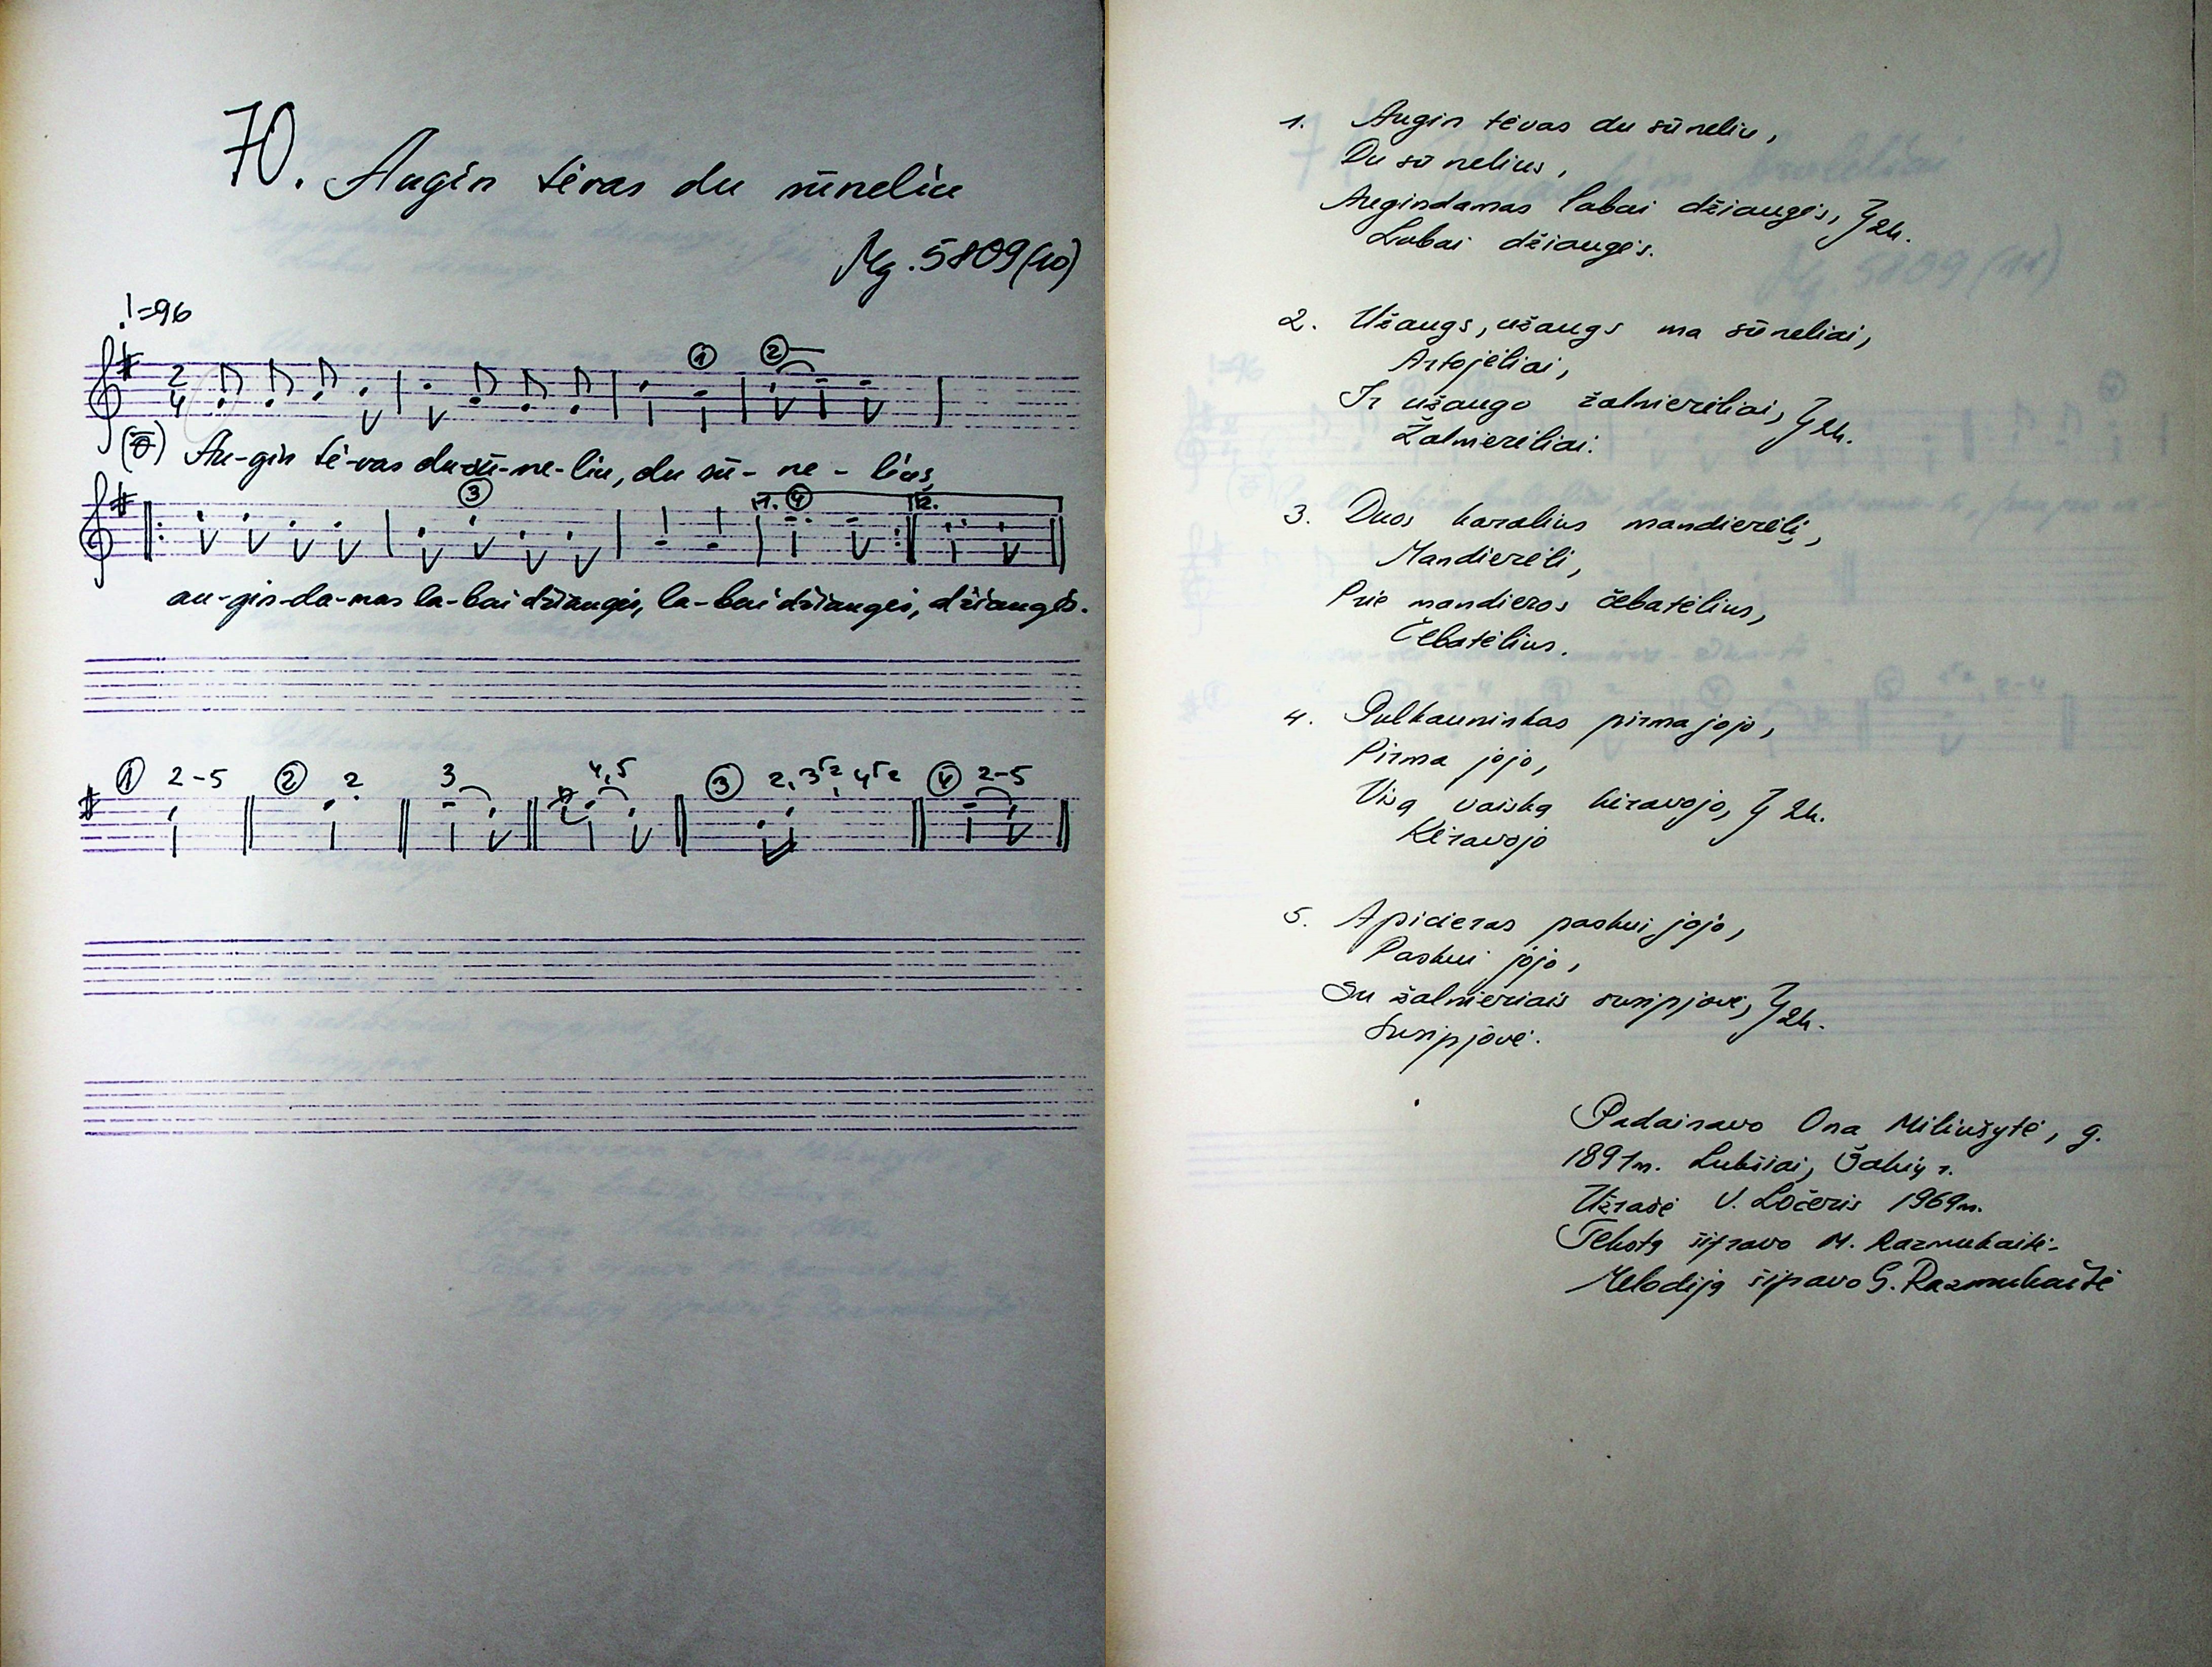 70. Augin tėvas du sūneliu
Mg. 5809(10)
♩=96
2
4
① ②
Au-gin tė-vas du sū-ne-liu, du sū- ne - lius,
③ 1. ④ 2.
au-gin-da-mas la-bai džiaugės, la-bai džiaugės, džiaugės.
① 2-5 ② 2 3 4,5 ③ 2, 3 2, 4 2 ④ 2-5
1. Augin tėvas du sūneliu,
Du sūnelius,
Augindamas labai džiaugės, } 2k.
Labai džiaugės.
2. Užaugs, užaugs ma sūneliai,
Artojėliai,
Ir užaugo žalnierėliai, } 2k.
Žalnierėliai.
3. Duos karalius mandierėlį,
Mandierėlį,
Prie mandieros čebatėlius,
Čebatėlius.
4. Pulkauninkas pirma jojo,
Pirma jojo,
Visą vaiską kiravojo, } 2k.
Kiravojo
5. Apicieras paskui jojo,
Paskui jojo,
Su žalnieriais susipjovė, } 2k.
Susipjovė.
Padainavo Ona Miliušytė, g.
1891m. Lukšiai, Šakių r.
Užrašė V. Ločeris 1969m.
Tekstą šifravo M. Razmukaitė.
Melodiją šifravo G. Razmukaitė